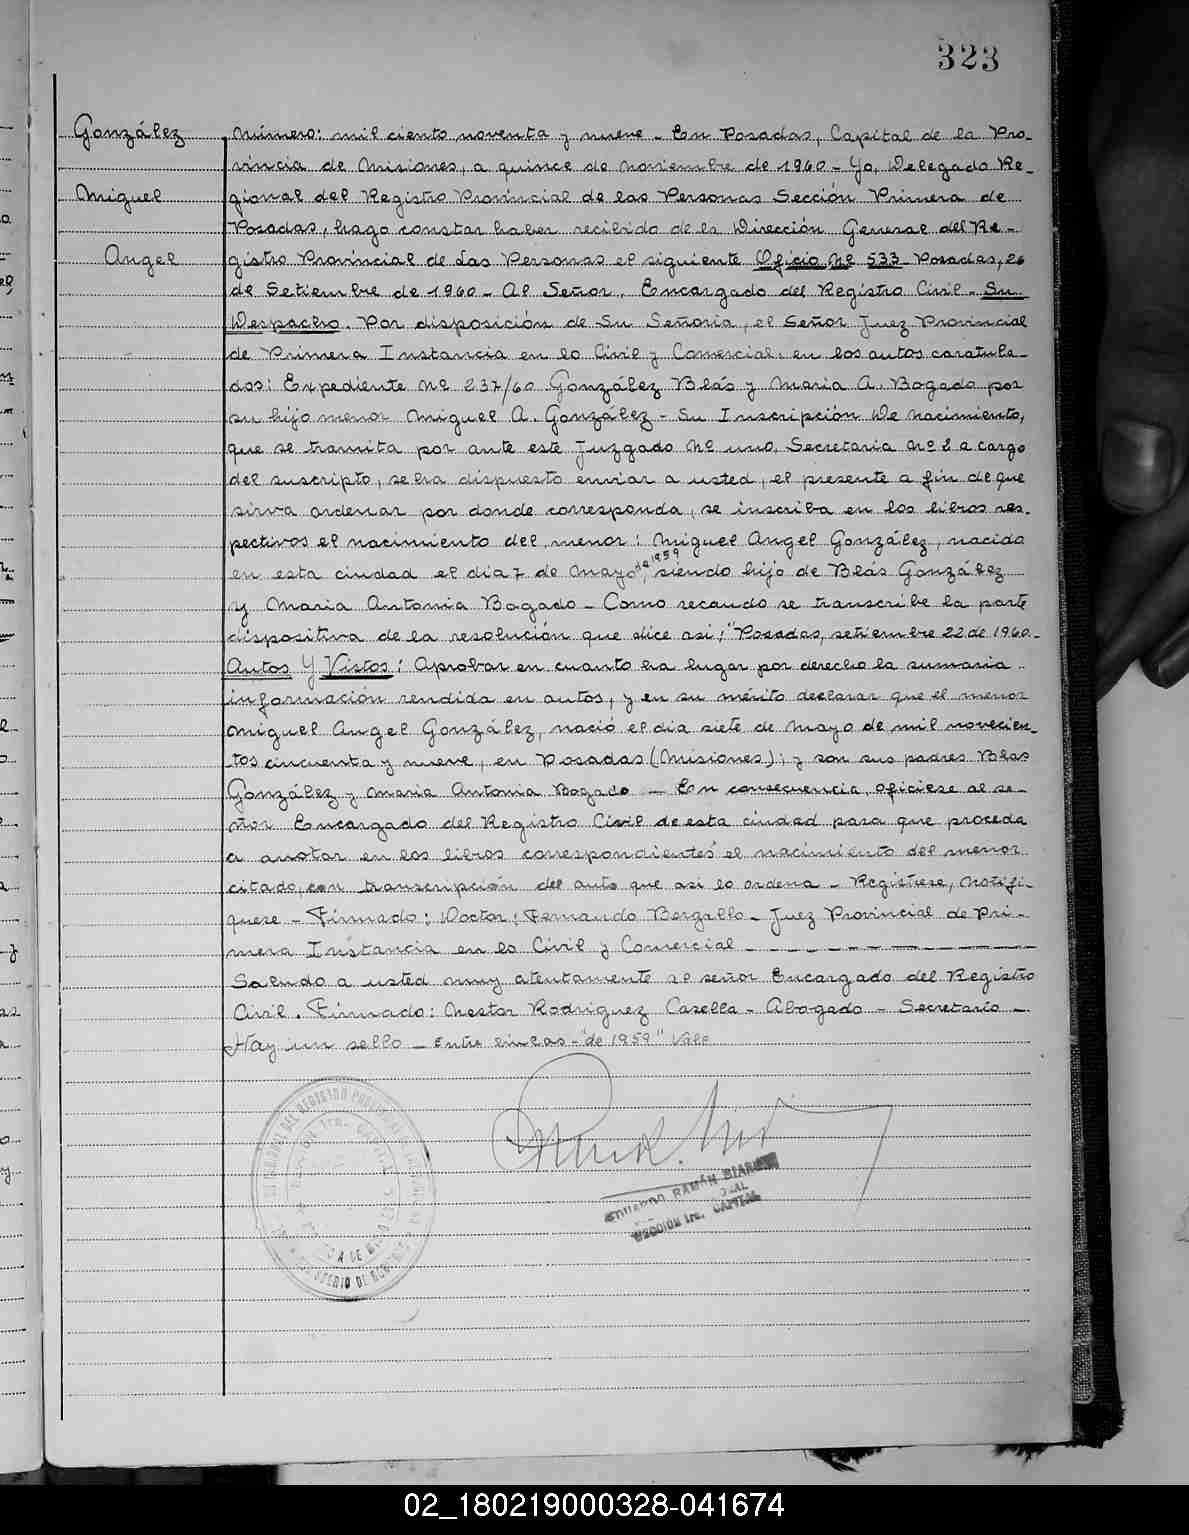 323
González
Miguel
Angel
Número: mil ciento noventa y nueve - En Posadas, Capital de la Pro-
vincia de Misiones, a quince de noviembre de 1960 - Yo, Delegado Re-
gional del Registro Provincial de las Personas Sección Primera de
Posadas, hago constar haber recibido de la Dirección General del Re-
gistro Provincial de Las Personas el siguiente Oficio Nº 533 - Posadas, 26
de Setiembre de 1960 - Al Señor, Encargado del Registro Civil - Su
Despacho. Por disposición de Su Señoria, el Señor Juez Provincial
de Primera Instancia en lo Civil y Comercial, en los autos caratula-
dos: Expediente Nº 237/60 González Blás y Maria A. Bogado por
su hijo menor Miguel A. González - Su Inscripción De nacimiento,
que se tramita por ante este Juzgado Nº uno, Secretaria Nº 2 a cargo
del suscripto, se ha dispuesto enviar a usted, el presente a fin de que
sirva ordenar por donde corresponda, se inscriba en los libros res-
pectivos el nacimiento del menor: Miguel Angel González, nacido
en esta ciudad el dia 7 de Mayo de 1959, siendo hijo de Blás González
y Maria Antonia Bogado - Como recaudo se transcribe la parte
dispositiva de la resolución que dice asi: "Posadas, setiembre 22 de 1960 -
Autos Y Vistos: Aprobar en cuanto ha lugar por derecho la sumaria
información rendida en autos, y en su mérito declarar que el menor
Miguel Angel González, nació el dia siete de Mayo de mil novecien-
tos cincuenta y nueve, en Posadas (Misiones); y son sus padres Blas
González y Maria Antonia Bogado - En consecuencia, ofíciese al se-
ñor Encargado del Registro Civil de esta ciudad para que proceda
a anotar en los libros correspondientes el nacimiento del menor
citado, con transcripción del auto que asi lo ordena - Regístrese, notifi-
quese - Firmado: Doctor: Fernando Bergallo - Juez Provincial de Pri-
mera Instancia en lo Civil y Comercial - - - - - - - -
Saludo a usted muy atentamente al señor Encargado del Registro
Civil. Firmado: Nestor Rodriguez Casella - Abogado - Secretario -
Hay un sello - Entre lineas - "de 1959" Vale
RAMÓN
SECCIÓN 1ra. CAPITAL
02_180219000328-041674